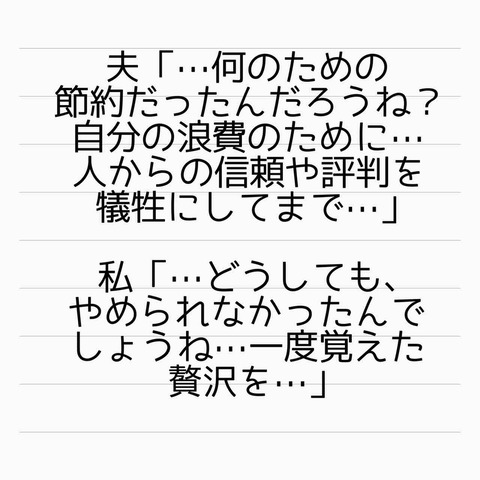 夫「…何のための
節約だったんだろうね?
自分の浪費のために…
人からの信頼や評判を
犠牲にしてまで…」
私「…どうしても、
やめられなかったんで
しょうね…一度覚えた
贅沢を…」